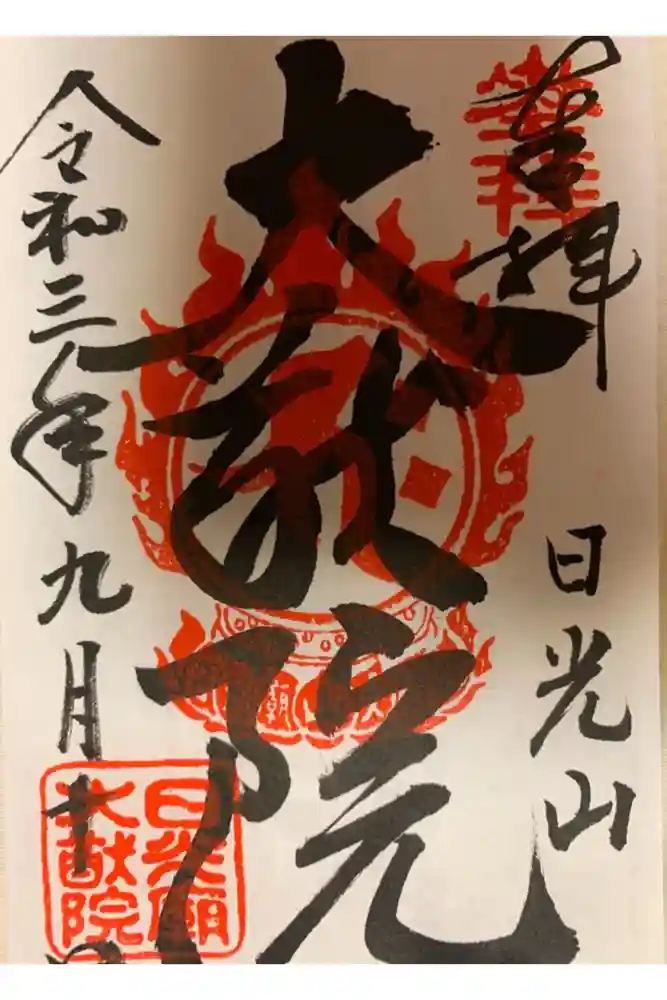 奉拝
日光山
大猷院
令和三年九月十
日光廟
大猷院
廟